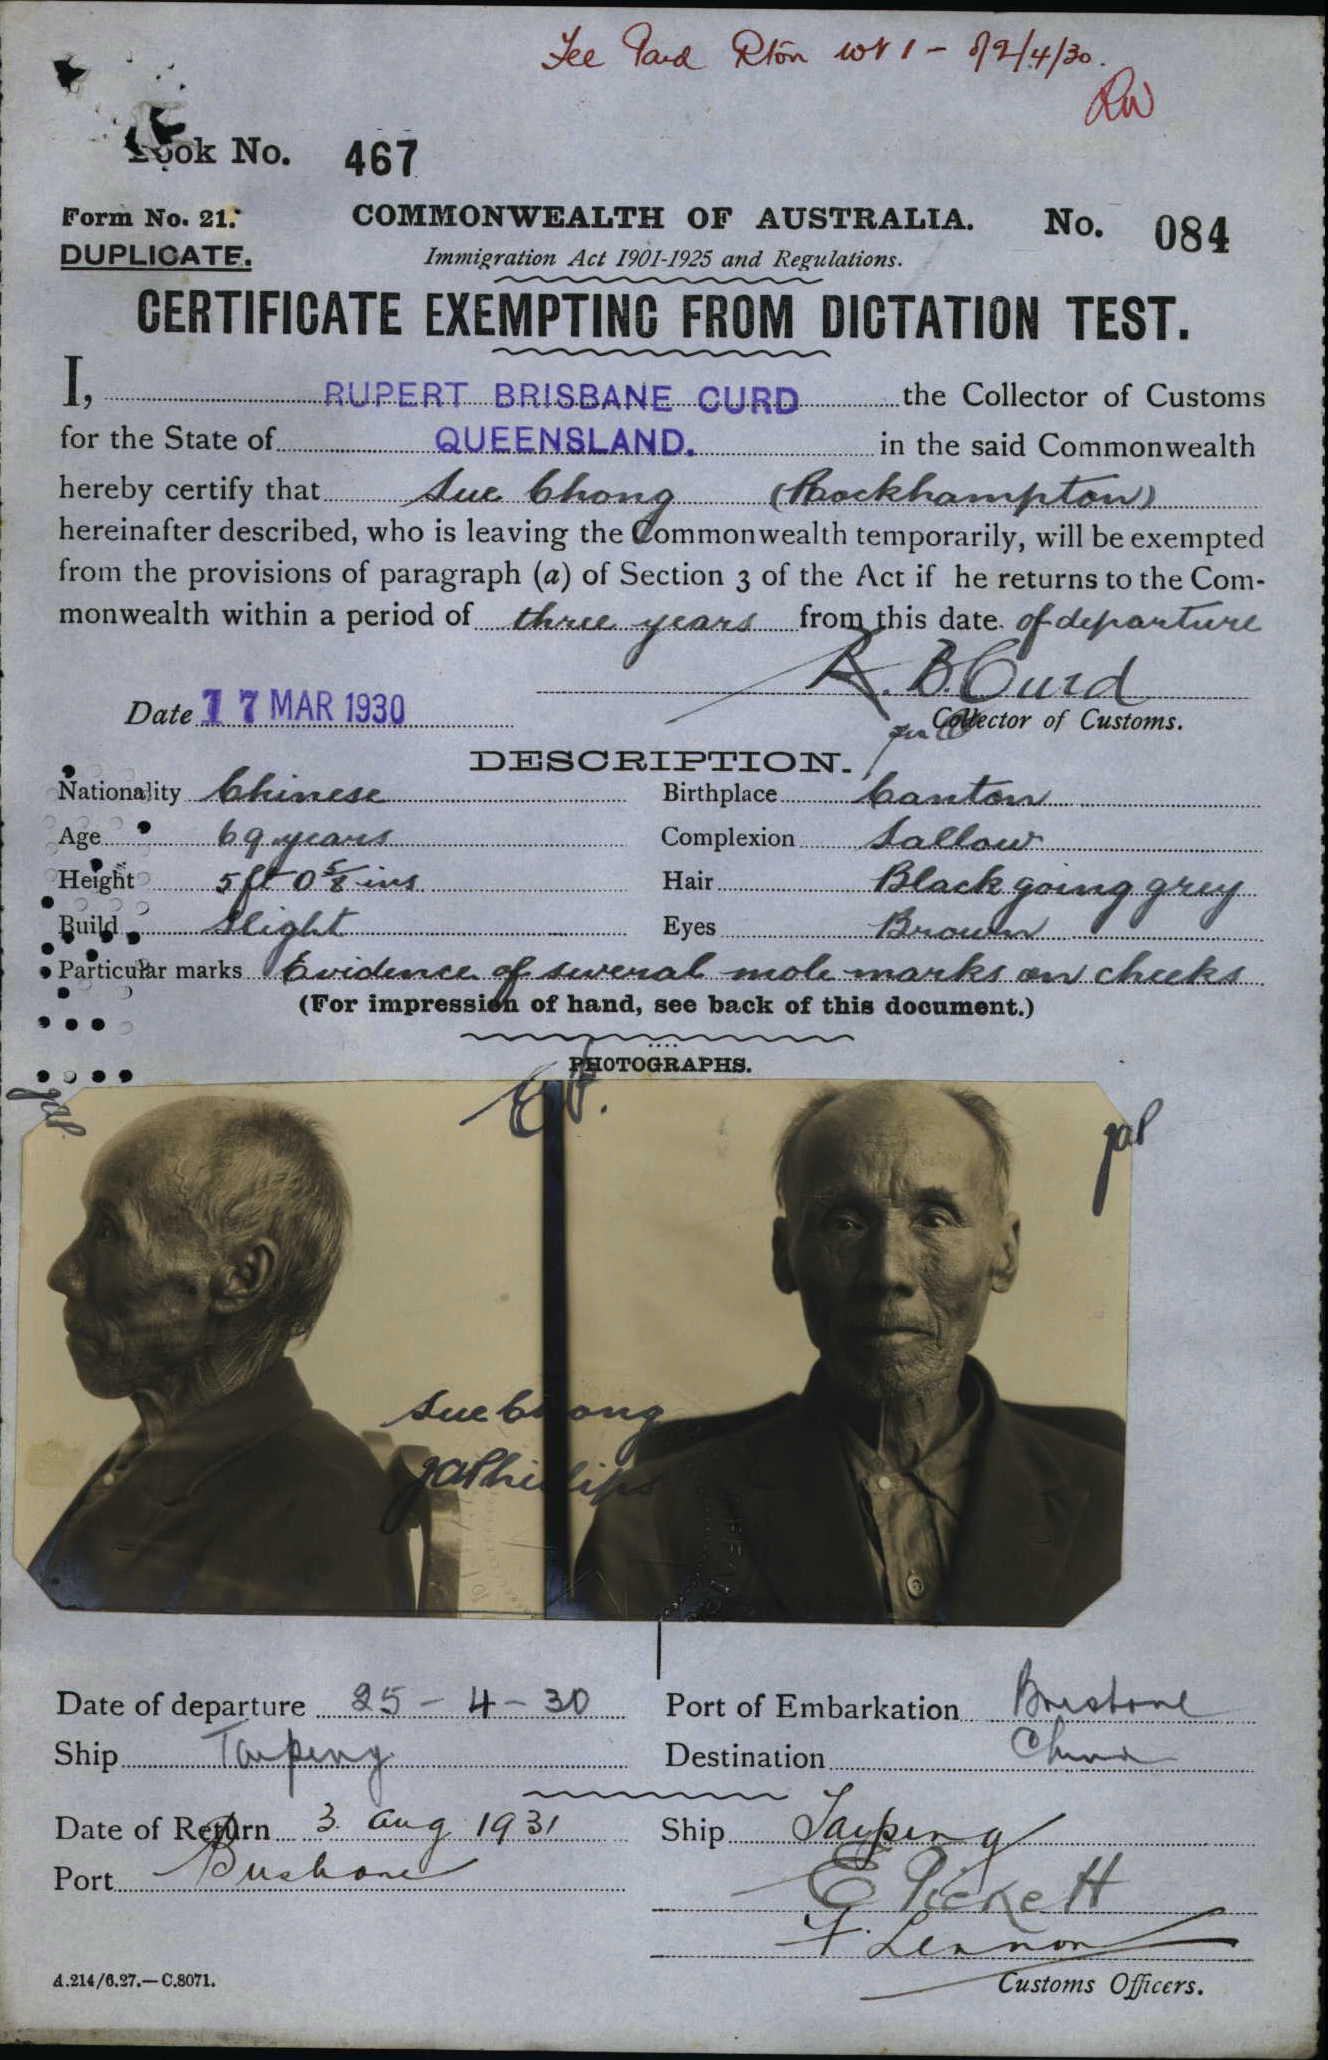 Fee Paid Rton
2/4/30.
RW
ook No. 467
Form No. 21. COMMONWEALTH OF AUSTRALIA. No. 084
DUPLICATE. Immigration Act 1901-1925 and Regulations.
CERTIFICATE EXEMPTING FROM DICTATION TEST.
I, RUPERT BRISBANE CURD the Collector of Customs
for the State of QUEENSLAND. in the said Commonwealth
hereby certify that Sue Chong (Rockhampton)
hereinafter described, who is leaving the Commonwealth temporarily, will be exempted
from the provisions of paragraph (a) of Section 3 of the Act if he returns to the Com-
monwealth within a period of three years from this date of departure
R. B. Curd
Date 17 MAR 1930 Collector of Customs.
DESCRIPTION.
Nationality Chinese Birthplace Canton
Age 69 years Complexion Sallow
Height 5 ft 0 5/8 ins Hair Black going grey
Build Slight Eyes Brown
Particular marks Evidence of several mole marks on cheeks
(For impression of hand, see back of this document.)
PHOTOGRAPHS.
JAP
JAP
Sue Chong
JAPhillips
Date of departure 25-4-30 Port of Embarkation Brisbane
Ship Taiping Destination China
Date of Return 3 Aug 1931 Ship Taiping
Port Brisbane E Pickett
F. Lennon
A.214/6.27.—C.8071. Customs Officers.